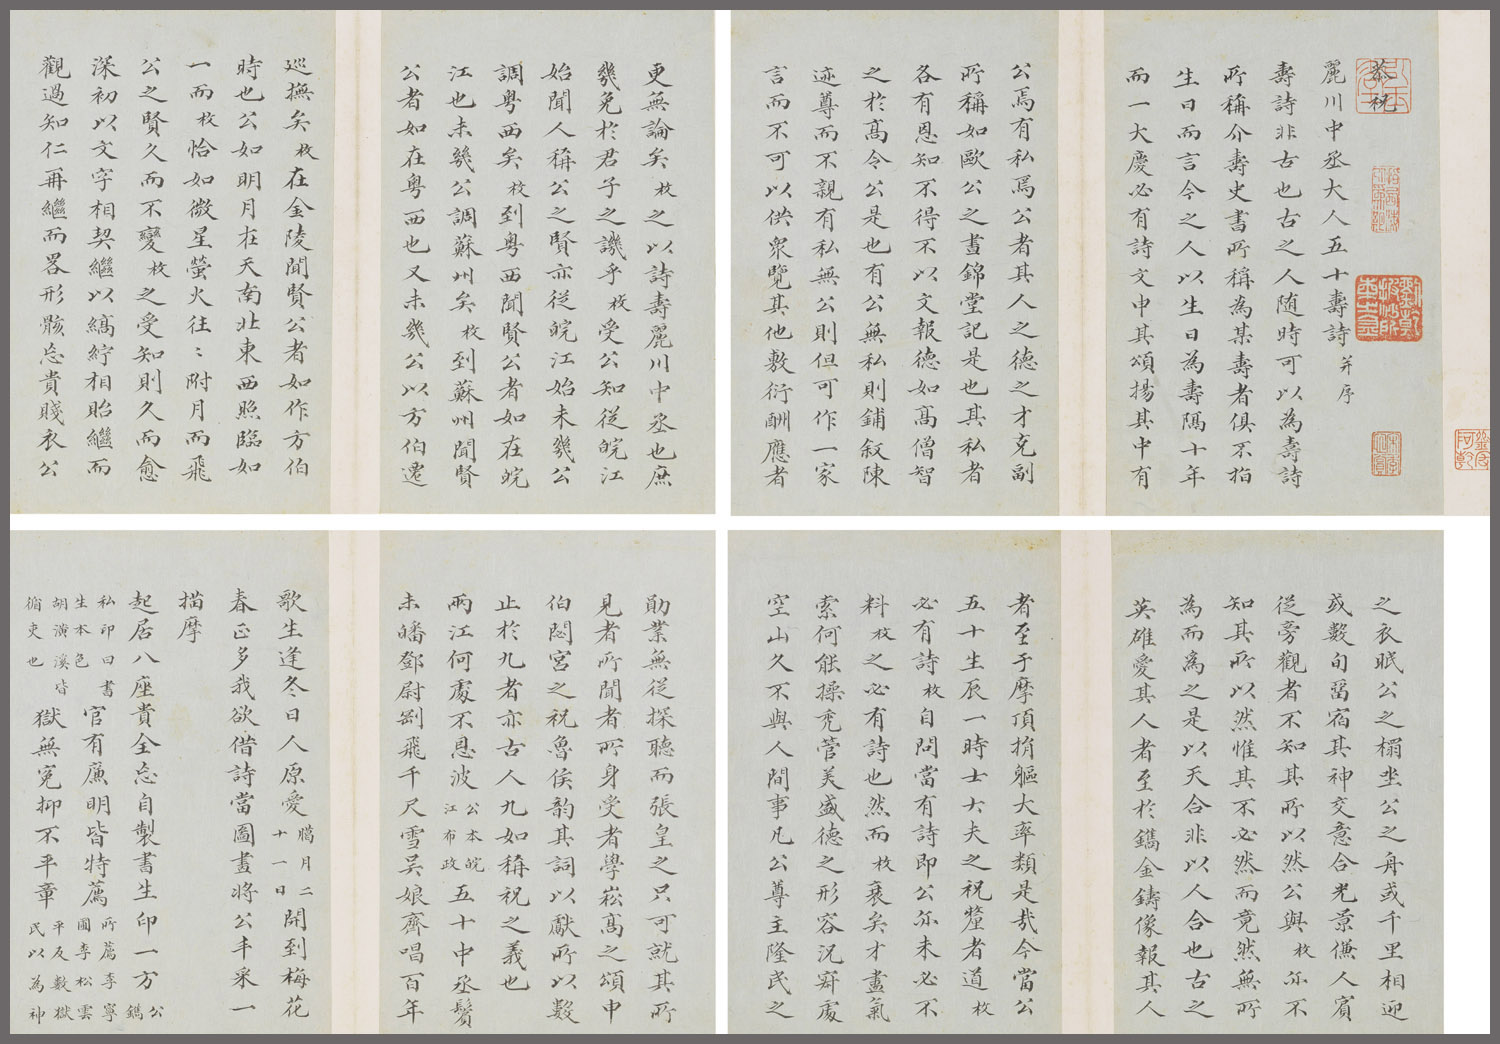 恭祝
麗川中丞大人五十壽詩并序
壽詩非古也古之人随時可以為壽詩
所稱介壽史書所稱為某壽者俱不指
生日而言今之人以生日為壽隔十年
而一大慶必有詩文申其頌揚其中有
公焉有私焉公者其人之德之才克副
所稱如歐公之晝錦堂記是也其私者
各有恩知不得不以文報德如髙僧智
之於髙令公是也有公無私則鋪叙陳
迹尊而不親有私無公則但可作一家
言而不可以供衆覽其他敷衍酬應者
更無論矣枚之以詩壽麗川中丞也庶
幾免於君子之譏乎枚受公知從皖江
始聞人稱公之賢亦從皖江始未幾公
調粤西矣枚到粤西聞賢公者如在皖
江也未幾公調蘇州矣枚到蘇州聞賢
公者如在粤西也又未幾公以方伯遷
巡撫矣枚在金陵聞賢公者如作方伯
時也公如明月在天南北東西照臨如
一而枚恰如微星螢火往〻附月而飛
公之賢久而不變枚之受知則久而愈
深初以文字相契繼以縞紵相貽繼而
觀過知仁再繼而畧形骸忘貴賤衣公
之衣眠公之榻坐公之舟或千里相迎
或數旬畱宿其神交意合光景傔人賓
從旁觀者不知其所以然公與枚亦不
知其所以然惟其不必然而竟然無所
為而為之是以天合非以人合也古之
英雄愛其人者至於鐫金鑄像報其人
者至于摩頂捐軀大率類是哉今當公
五十生辰一時士大夫之祝釐者道枚
必有詩枚自問當有詩即公亦未必不
料枚之必有詩也然而枚衰矣才盡氣
索何能操秃管美盛德之形容況寂處
空山久不與人間事凡公尊主隆民之
勛業無從探聽而張皇之只可就其所
見者所聞者所身受者學崧髙之頌申
伯閟宮之祝魯侯韵其詞以獻所以數
止於九者亦古人九如稱祝之義也
兩江何處不恩波公本皖江布政五十中丞鬢
未皤鄧尉剛飛千尺雪吴娘齊唱百年
歌生逢冬日人原愛臘月二十一日開到梅花
春正多我欲借詩當圖畫将公丰采一
描摩
起居八座貴全忘自製書生印一方公鐫
私印曰書生本色胡潢溪皆循吏也官有廉明皆特薦所薦李寧圃李松雲
獄無冤抑不平章平反數獄民以為神